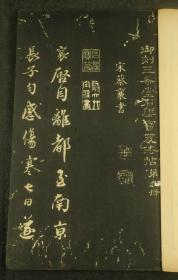 御刻三希堂石渠寶笈法帖第
宋蔡襄書
襄啓自離都至南京
長子勻感傷寒七日遂